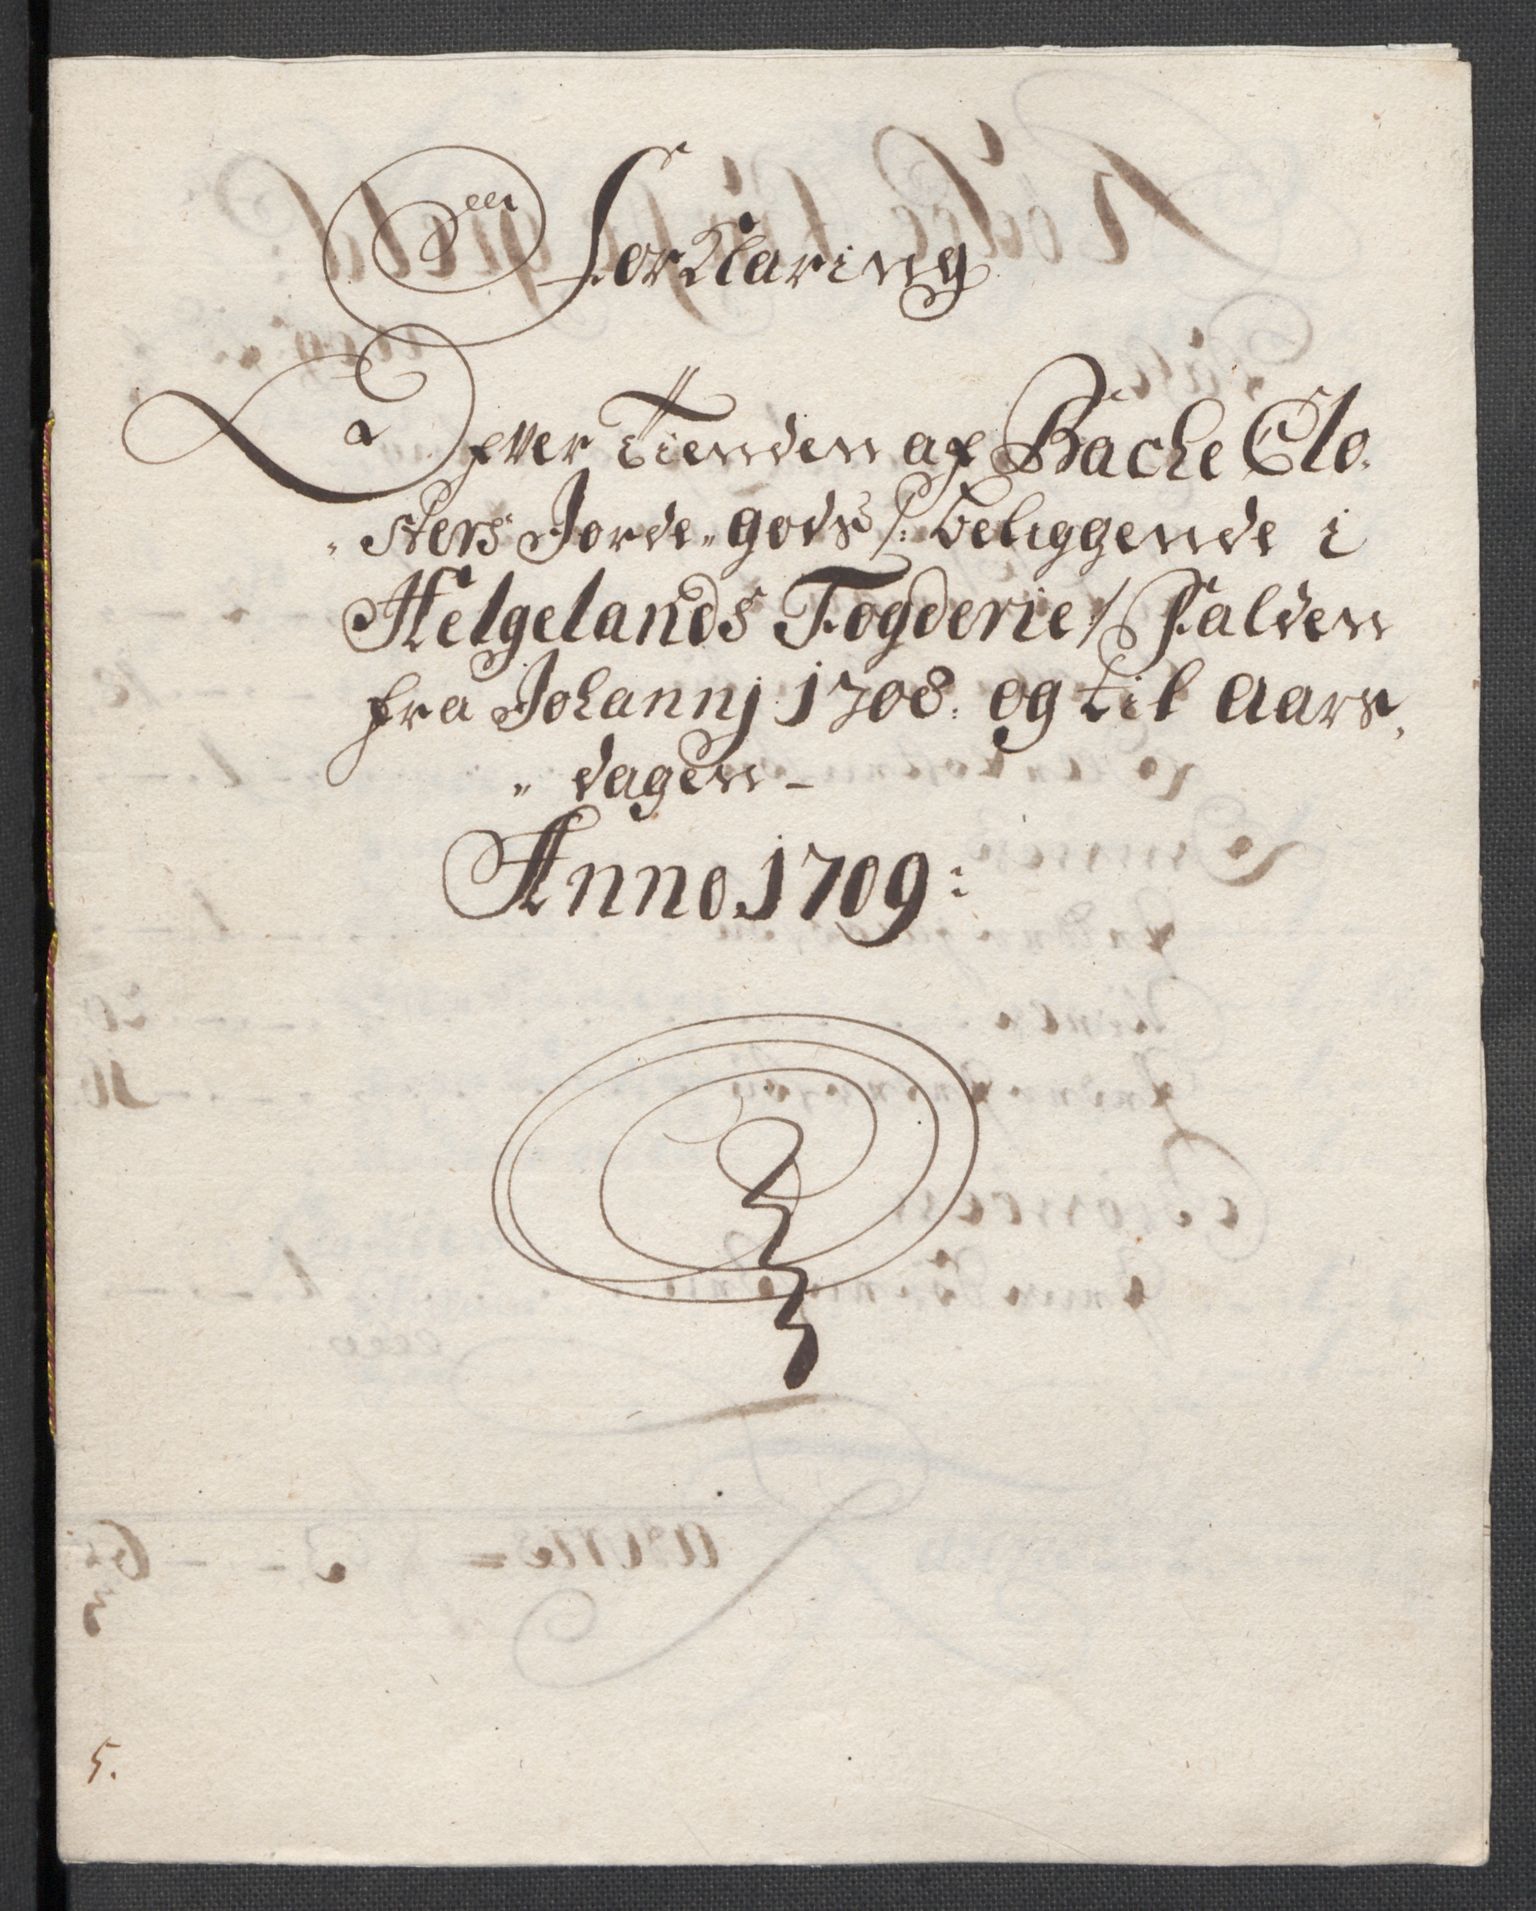 Forklaring
Ofver Tienden af Backe Clo-
"sters Jorde-gods /: beliggende i
Helgelands Fogderie / Falden
fra Johannj 1708. og til Aars-
" dagen -
Anno 1709:
5.